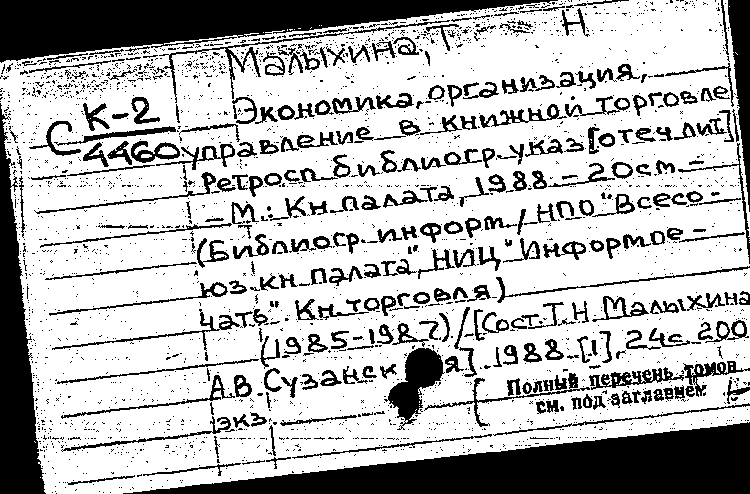 Малыхина, Т Н
Экономика, организация,
С К-2
4460
управление в книжной торговле
: Ретросп. библиогр. указ [отеч лит]
– М.: Кн. палата, 1988. – 20см. –
(Библиогр. информ. / НПО "Всесо-
юз. кн. палата", НИЦ "Информпе-
чать". Кн. торговля)
(1985-1987) / [Сост. Т. Н. Малыхина
А. В. Сузанск я]. 1988. [1], 24с. 200
экз.
Полный перечень томов
см. под заглавием